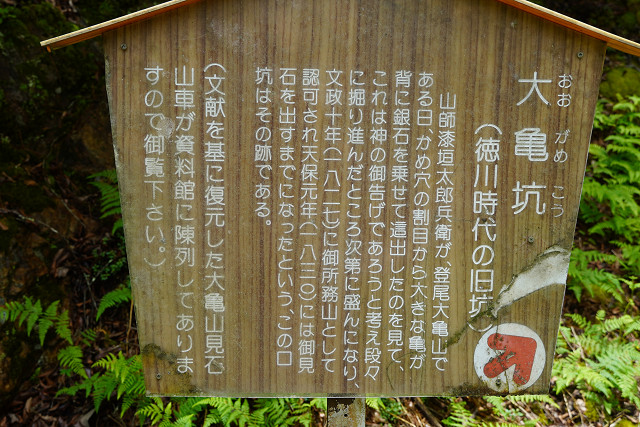 おおがめこう
大亀坑
(徳川時代の旧坑)
山師漆垣太郎兵衛が、登尾大亀山で
ある日、かめ穴の割目から大きな亀が
背に銀石を乗せて這出したのを見て、
これは神の御告げであろうと考え段々
に掘り進んだところ次第に盛んになり、
文政十年(一八二七)に御所務山として
認可され天保元年(一八三〇)には御見
石を出すまでになったという、この口
坑はその跡である。
(文献を基に復元した大亀山見石
山車が資料館に陳列してありま
すので御覧下さい。)